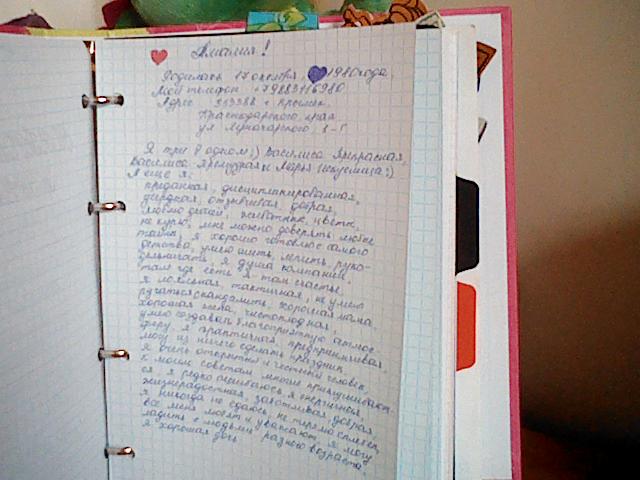 Амалия!
Родилась 17 октября, 1980 года,
Мой телефон +79883116980
Адрес 353388 г. Крымск,
Краснодарского края
ул Луначарского,
Я три в одном:) Василиса Прекрасная,
Василиса Премудрая и Марья Искусница:)
А ещё я:
преданная, дисциплинированная,
щедрая, отзывчивая, добрая,
люблю детей, животных, цветы,
не курю, мне можно доверять любые
тайны, я хорошо готовлю с самого
детства, умею шить, лепить, руко-
дельничать, я душа компании,
там где есть я - там счастье,
я лояльная, тактичная, не умею
ругаться скандалить, хорошая мама
хорошая жена, чистоплодная,
умею создавать благоприятную атмос-
феру, я практичная, предприимчивая
могу из ничего сделать праздник,
я очень открытый и честный человек
к моим советам многие прислушивают-
ся, я редко ошибаюсь, я энергичная
жизнерадостная, заботливая, добрая
я никогда не сдаюсь, не теряю
все меня любят и уважают, я могу
ладить с людьми разного возраста,
я хорошая дочь